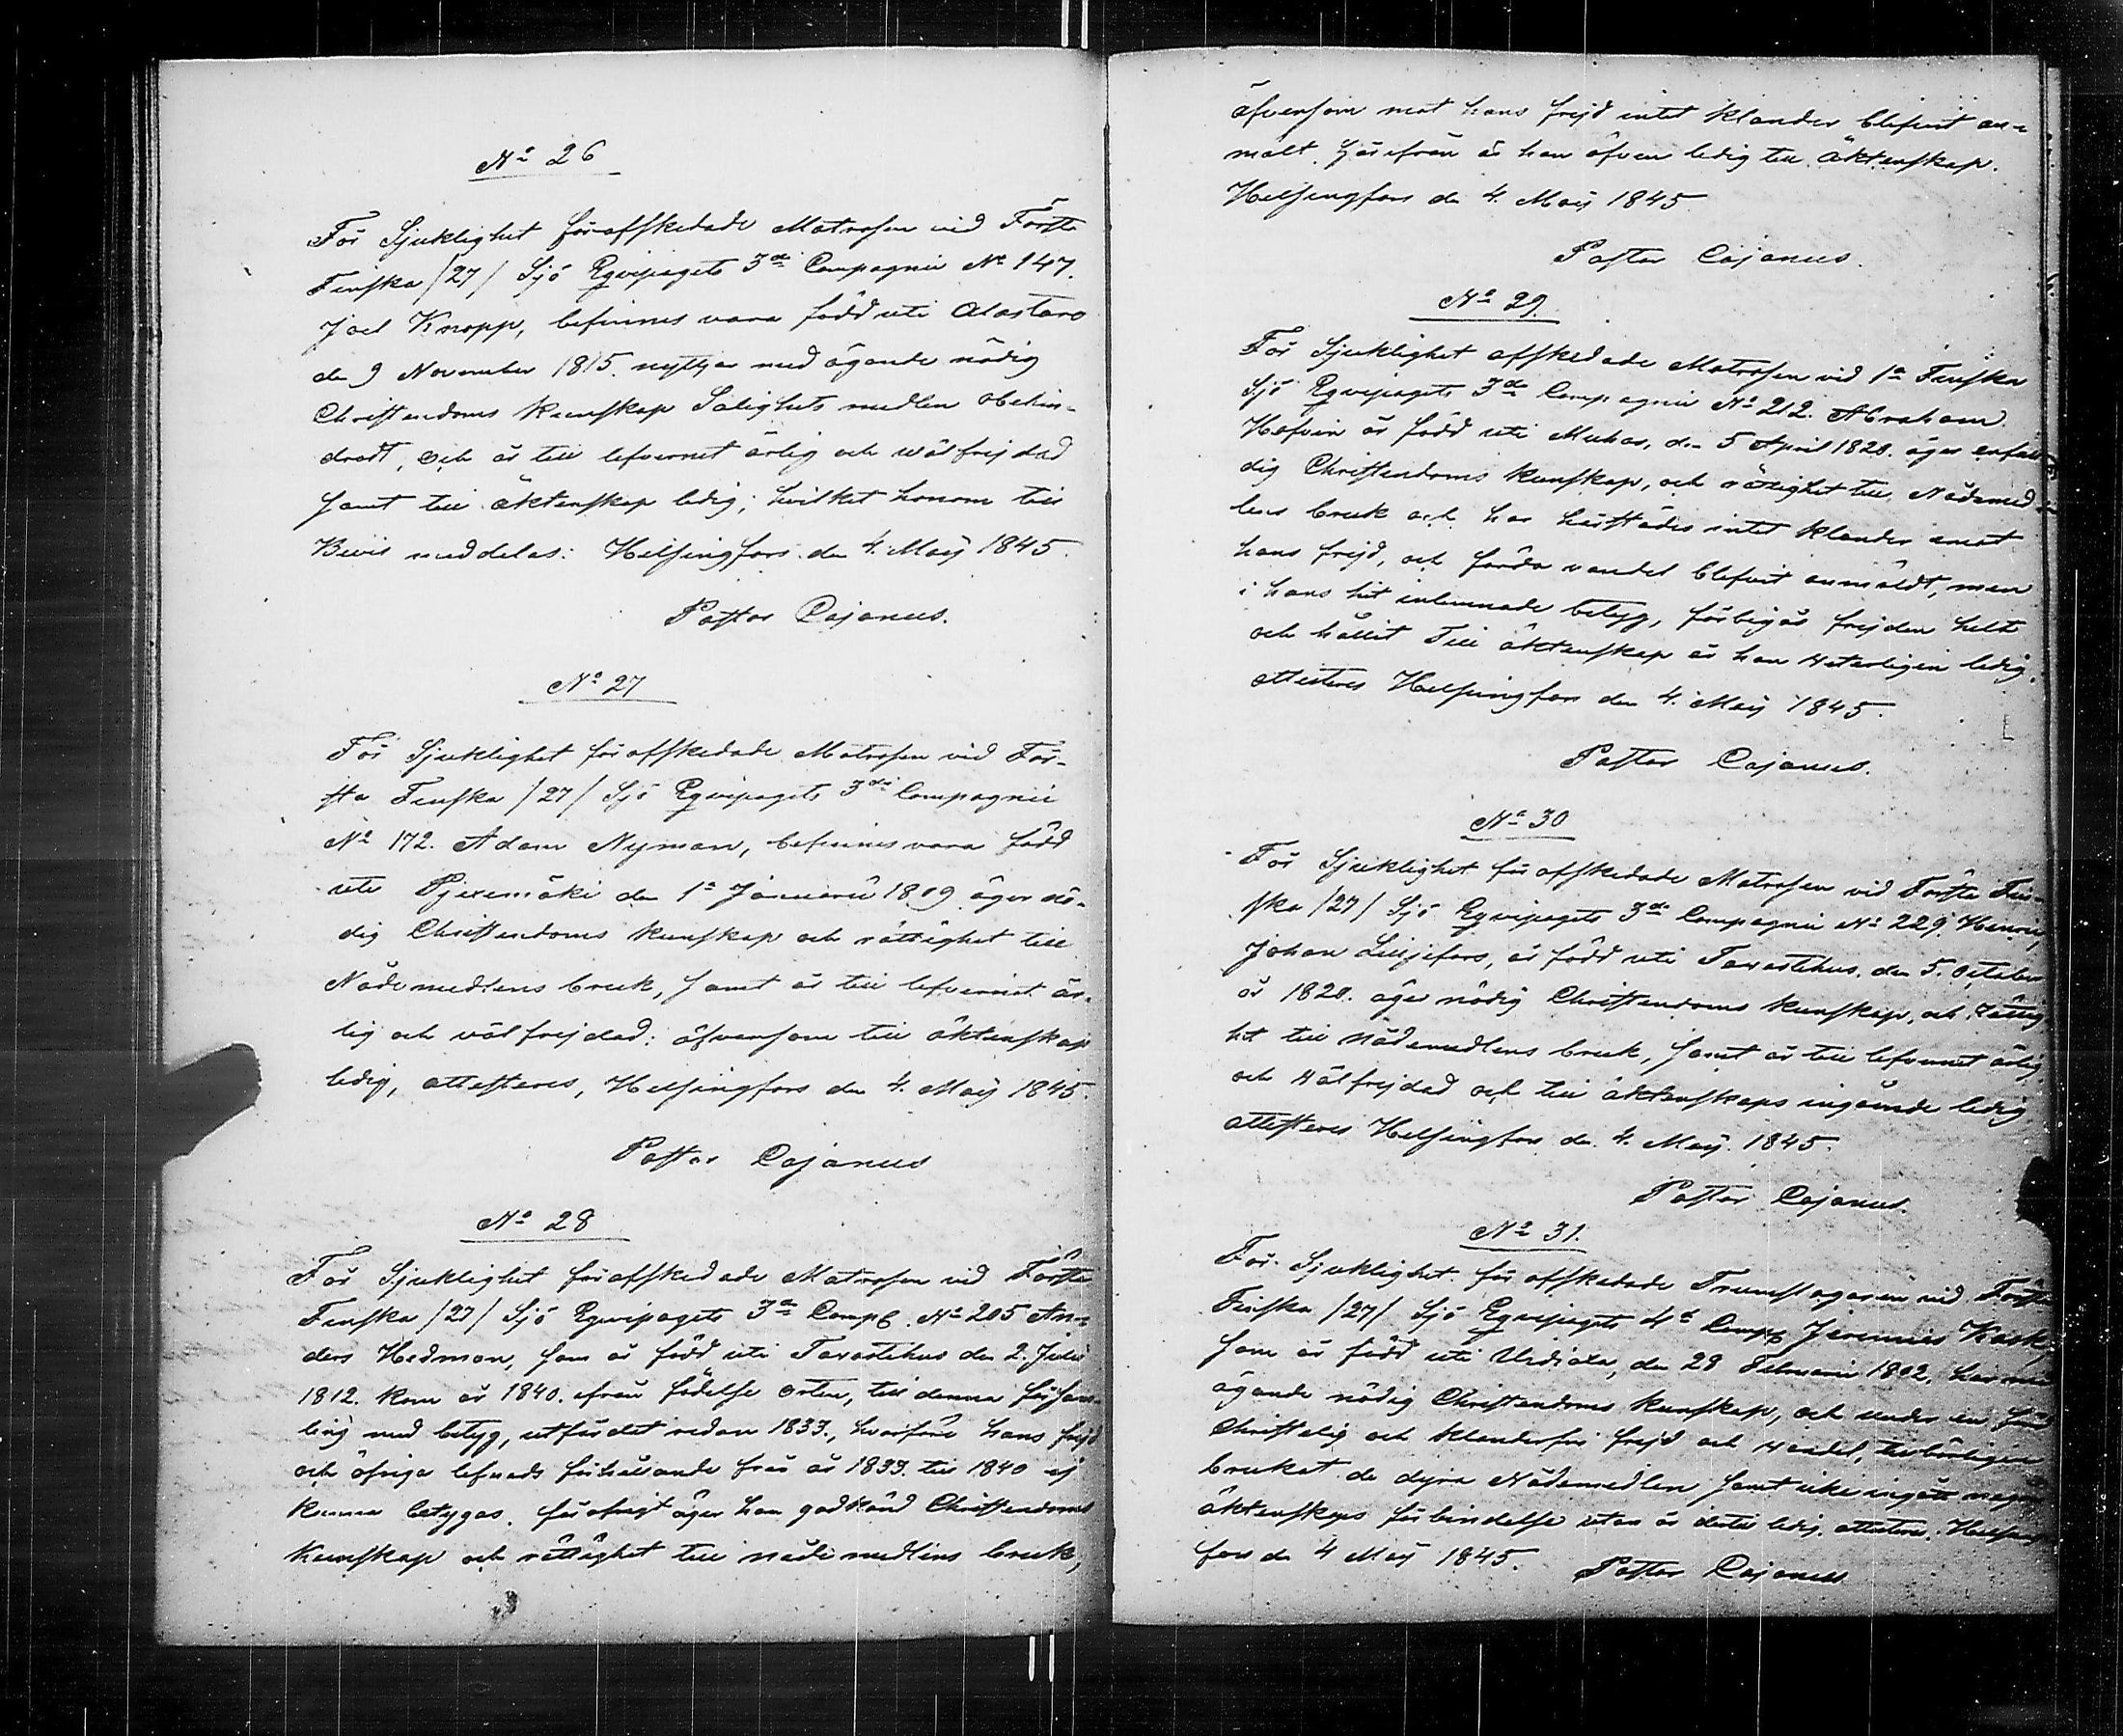 No 26
För Sjuklighet förafskedade Matrosen vid Första
Finska /27/ Sjö Eqvipagets 3de Compagnie No 147.
Joel Knapp, befinnes vara född uti Alastaro
den 9 November 1815. nyttjar med ägande nödig
Christendoms kunskap Salighets medlen obehin-
dradt, och är till lefvernet ärlig och wälfrejdad
samt till äktenskap ledig; hvilket honom till
Bevis meddelas: Helsingfors den 4. Maij 1845.
Pastor Cajanus.
No 27
För Sjuklighet förafskedade Matrosen vid För-
sta Finska /27/ Sjö Eqvipagets 3de Compagnie
No 172. Adam Nyman, befinnes vara född
uti Pjexemäki den 1a Januarii 1809 äger nö-
dig Christendoms kunskap och rättighet till
Nådemedlens bruk, samt är till lefvernet är-
lig och välfrejdad: äfvensom till äktenskap
ledig, attesteres, Helsingfors den 4. Maij 1845.
Pastor Cajanus
No 28
För Sjuklighet förafskedade Matrosen vid Första
Finska /27/ Sjö Eqvipagets 3de Comp. No 205 An-
ders Hedman, som är född uti Tavastehus den 2. Julii
1812. kom år 1840. ifrån födelse orten, till denna församl-
ling med betyg, utfärdet redan 1833., hvarföre hans frejd
och öfriga lefnads förhållande från år 1833. till 1840 ej
kunna betygas. föröfrigt äger han godkänd Christendoms
kunskap och rättighet till nådemedlens bruk,
äfvensom mot hans frejd intet klander blifvit an-
mält. Härifrån är han äfven ledig till Äktenskap.
Helsingfors den 4. Maij 1845
Pastor Cajanus.
No 29.
För Sjuklighet afskedade Matrosen vid 1a Finska
Sjö Eqvipagets 3de Compagnie No 212. Abraham
är född uti Muhos, den 5 April 1820. äger
dig Christendoms kunskap, och rättighet till Nådemed-
lens bruk och har härstädes intet klander emot
hans frejd, och förda vandel blifvit anmäldt, men
i hans hit inlemnade betyg, förbigås frejden helt
och hållit Till äktenskap är han veterligen ledig.
attesteres Helsingfors den 4. Maij 1845.
Pastor Cajanus.
No 30
För Sjuklighet förafskedade Matrosen vid Första Fin-
ska /27/ Sjö Eqvipagets 3de Compagnie No 229. Henric
Johan Liljefors, är född uti Tavastehus, den 5. October
år 1820. äger nödig Christendoms kunskap, och rättig
het till nådemedlens bruk, samt är till lefvernet ärlig
och wälfrejdad och till äktenskaps ingående ledig
attesteres Helsingfors den 4. Maij 1845.
Pastor Cajanus.
No 31.
För Sjuklighet förafskedade Trumslagaren vid Första
Finska /27/ Sjö Eqvipagets 4de Comp Jeremias Kask,
som är född uti Urdiala, den 28 Februarii 1802, har med
ägande nödig Christendoms kunskap, och under en förd
Christelig och klanderfri frejd och wandel, tillbörligen
brukat de dyra Nådemedlen samt icke ingått någon
äktenskaps förbindelse utan är dertill ledig. attesteres. Helsing
fors den 4 Maij 1845. Pastor Cajanus